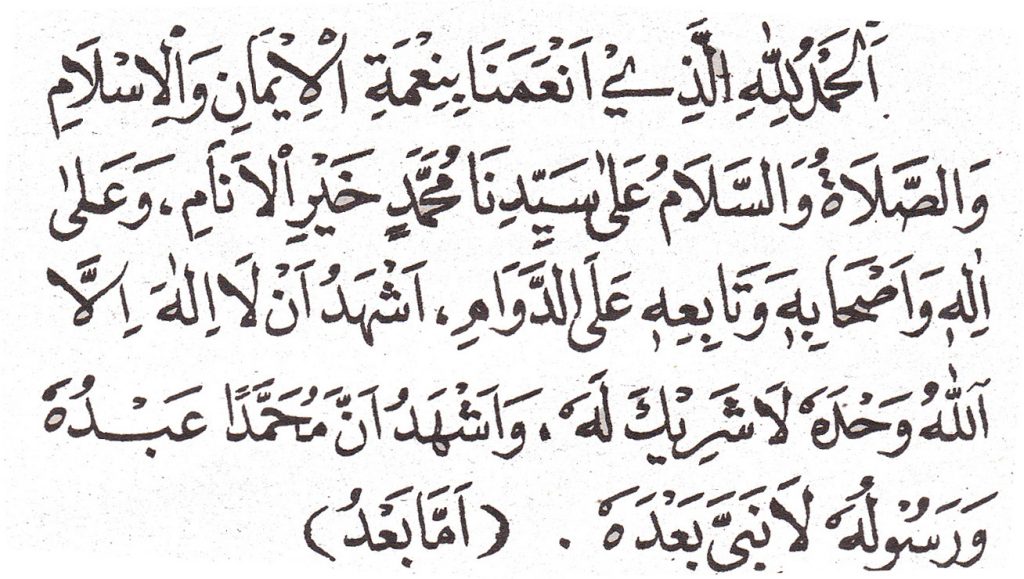 اَلْحَمْدُ لِلّٰهِ الَّذِيْ اَنْعَمَنَا بِنِعْمَةِ الْاِيْمَانِ وَالْاِسْلَامِ
وَالصَّلَاةُ وَالسَّلَامُ عَلٰى سَيِّدِنَا مُحَمَّدٍ خَيْرِ الْاَنَامِ، وَعَلٰى
اٰلِهٖ وَاَصْحَابِهٖ وَتَابِعِهٖ عَلَى الدَّوَامِ، اَشْهَدُ اَنْ لَا اِلٰهَ اِلَّا
اللّٰهُ وَحْدَهٗ لَا شَرِيْكَ لَهٗ، وَاَشْهَدُ اَنَّ مُحَمَّدًا عَبْدُهٗ
وَرَسُوْلُهٗ لَا نَبِيَّ بَعْدَهٗ . (اَمَّا بَعْدُ)